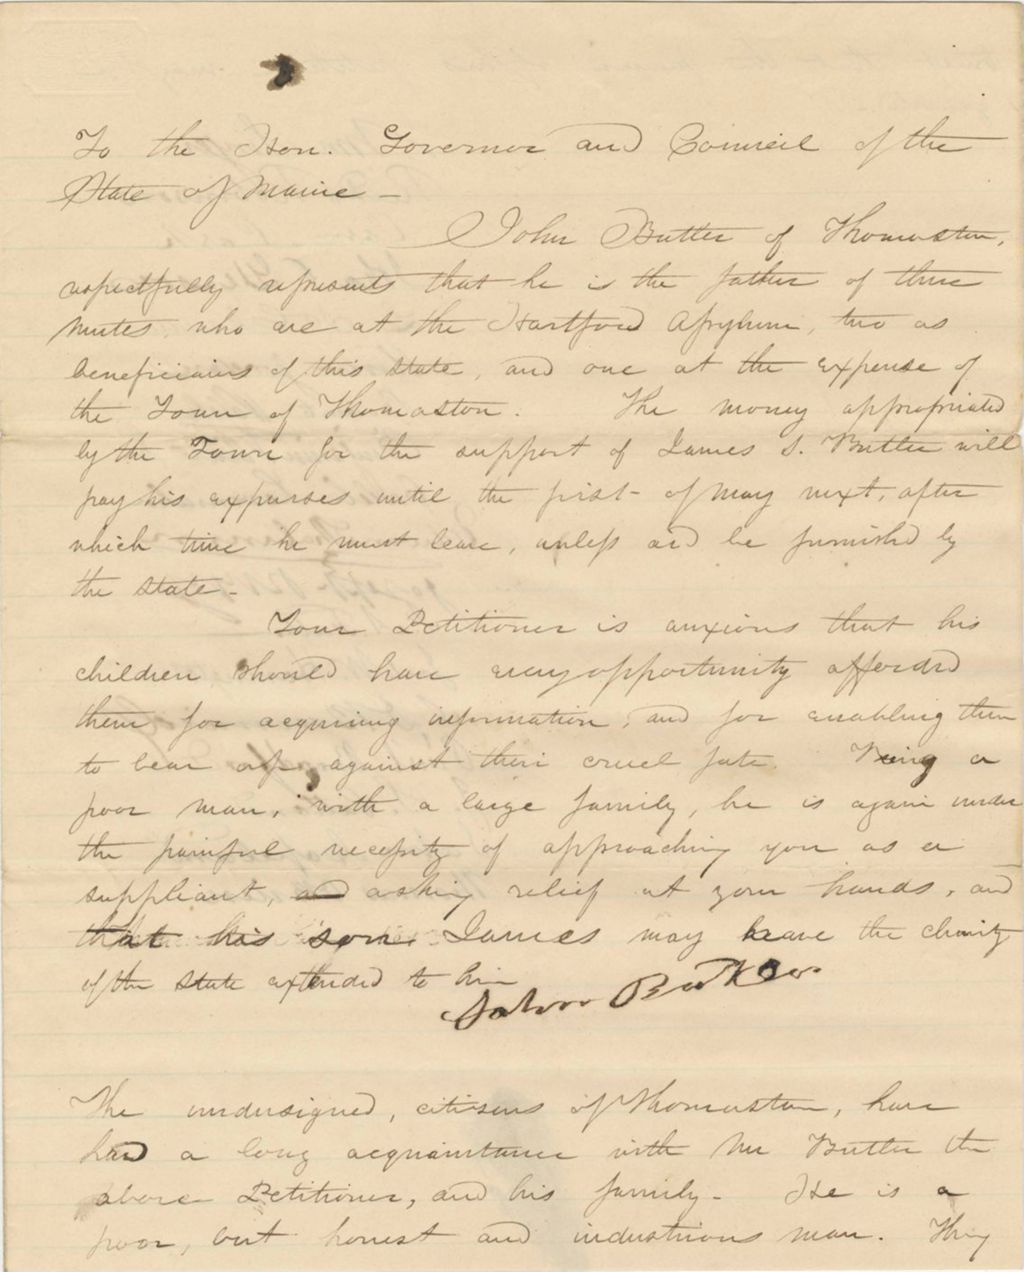 To the Hon. Governor and Council of the
State of Maine –
John Butler of Thomaston,
respectfully represents that he is the father of three
mutes, who are at the Hartford Assylum, two as
beneficiaries of this state, and one at the expense of
the Town of Thomaston. The money appropriated
by the Town for the support of James S. Butler will
pay his expenses until the first of May next, after
which time he must leave, unless aid be furnished by
the state –
Your Petitioner is anxious that his
children should have every opportunity afforded
them for acquiring information, and for enabling them
to bear up against their cruel fate. Being a
poor man, with a large family, he is again under
the painful necessity of approaching you as a
suppliant, and asking relief at your hands, and
that his son James may have the charity
of the state extended to him
John Butler
The undersigned, citizens of Thomaston, have
had a long acquaintance with Mr Butler the
above Petitioner, and his family – He is a
poor, but honest and industrious man. They